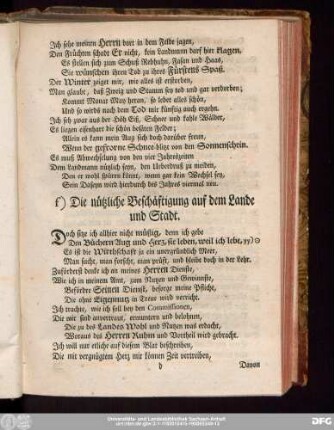 Ich sehe meinen Herrn dort in dem Felde jagen,
Den Früchten schadt Er nicht, kein Landmann darf hier klagen,
Es stellen sich zum Schuß Rebhuhn, Fasan und Haas,
Sie wünschen ihren Tod zu ihres Fürstens Spaß.
Der Winter zeiget mir, wie alles ist erstorben,
Man glaubt, daß Zweig und Stamm sey tod und gar verdorben;
Kommt Monat May heran, so lebet alles schön,
Und so wirds nach dem Tod mir künftig auch ergehn.
Ich seh zwar aus der Höh Eiß, Schnee und kahle Wälder,
Es liegen eisenhart die schön besäten Felder;
Allein es kann mein Aug sich doch darüber freun,
Wenn der gefrorne Schnee blitzt von den Sonnenschein.
Es muß Abwechslung von den vier Jahrszeiten
Dem Landmann nützlich seyn, den Ueberdruß zu meiden,
Den er wohl fühlen könnt, wann gar kein Wechsel sey,
Sein Daseyn wird hierdurch des Jahres viermal neu.
f) Die nützliche Beschäftigung auf dem Lande
und Stadt.
Doch sitze ich allhier nicht müßig, denn ich gebe
Den Büchern Aug und Herz, sie leben, weil ich lebe, yy)
Es ist die Wirthschaft ja ein unergründlich Meer,
Man sucht, man forscht, man prüft, und bleibt doch in der Lehr.
Zuförderst denke ich an meines Herren Dienste,
Wie ich in meinem Amt, zum Nutzen und Gewinnste,
Befördre Seinen Dienst, besorge meine Pflicht,
Die ohne Eigennutz in Treue wird verricht.
Ich trachte, wie ich soll bey den Commissionen,
Die mir sind anvertraut, ermuntern und belohnen,
Die zu des Landes Wohl und Nutzen was erdacht,
Woraus des Herren Ruhm und Vortheil wird gebracht.
Ich will nur etliche auf diesem Blat beschreiben,
Die mit vergnügtem Herz mir können Zeit vertreiben,
D
Davon